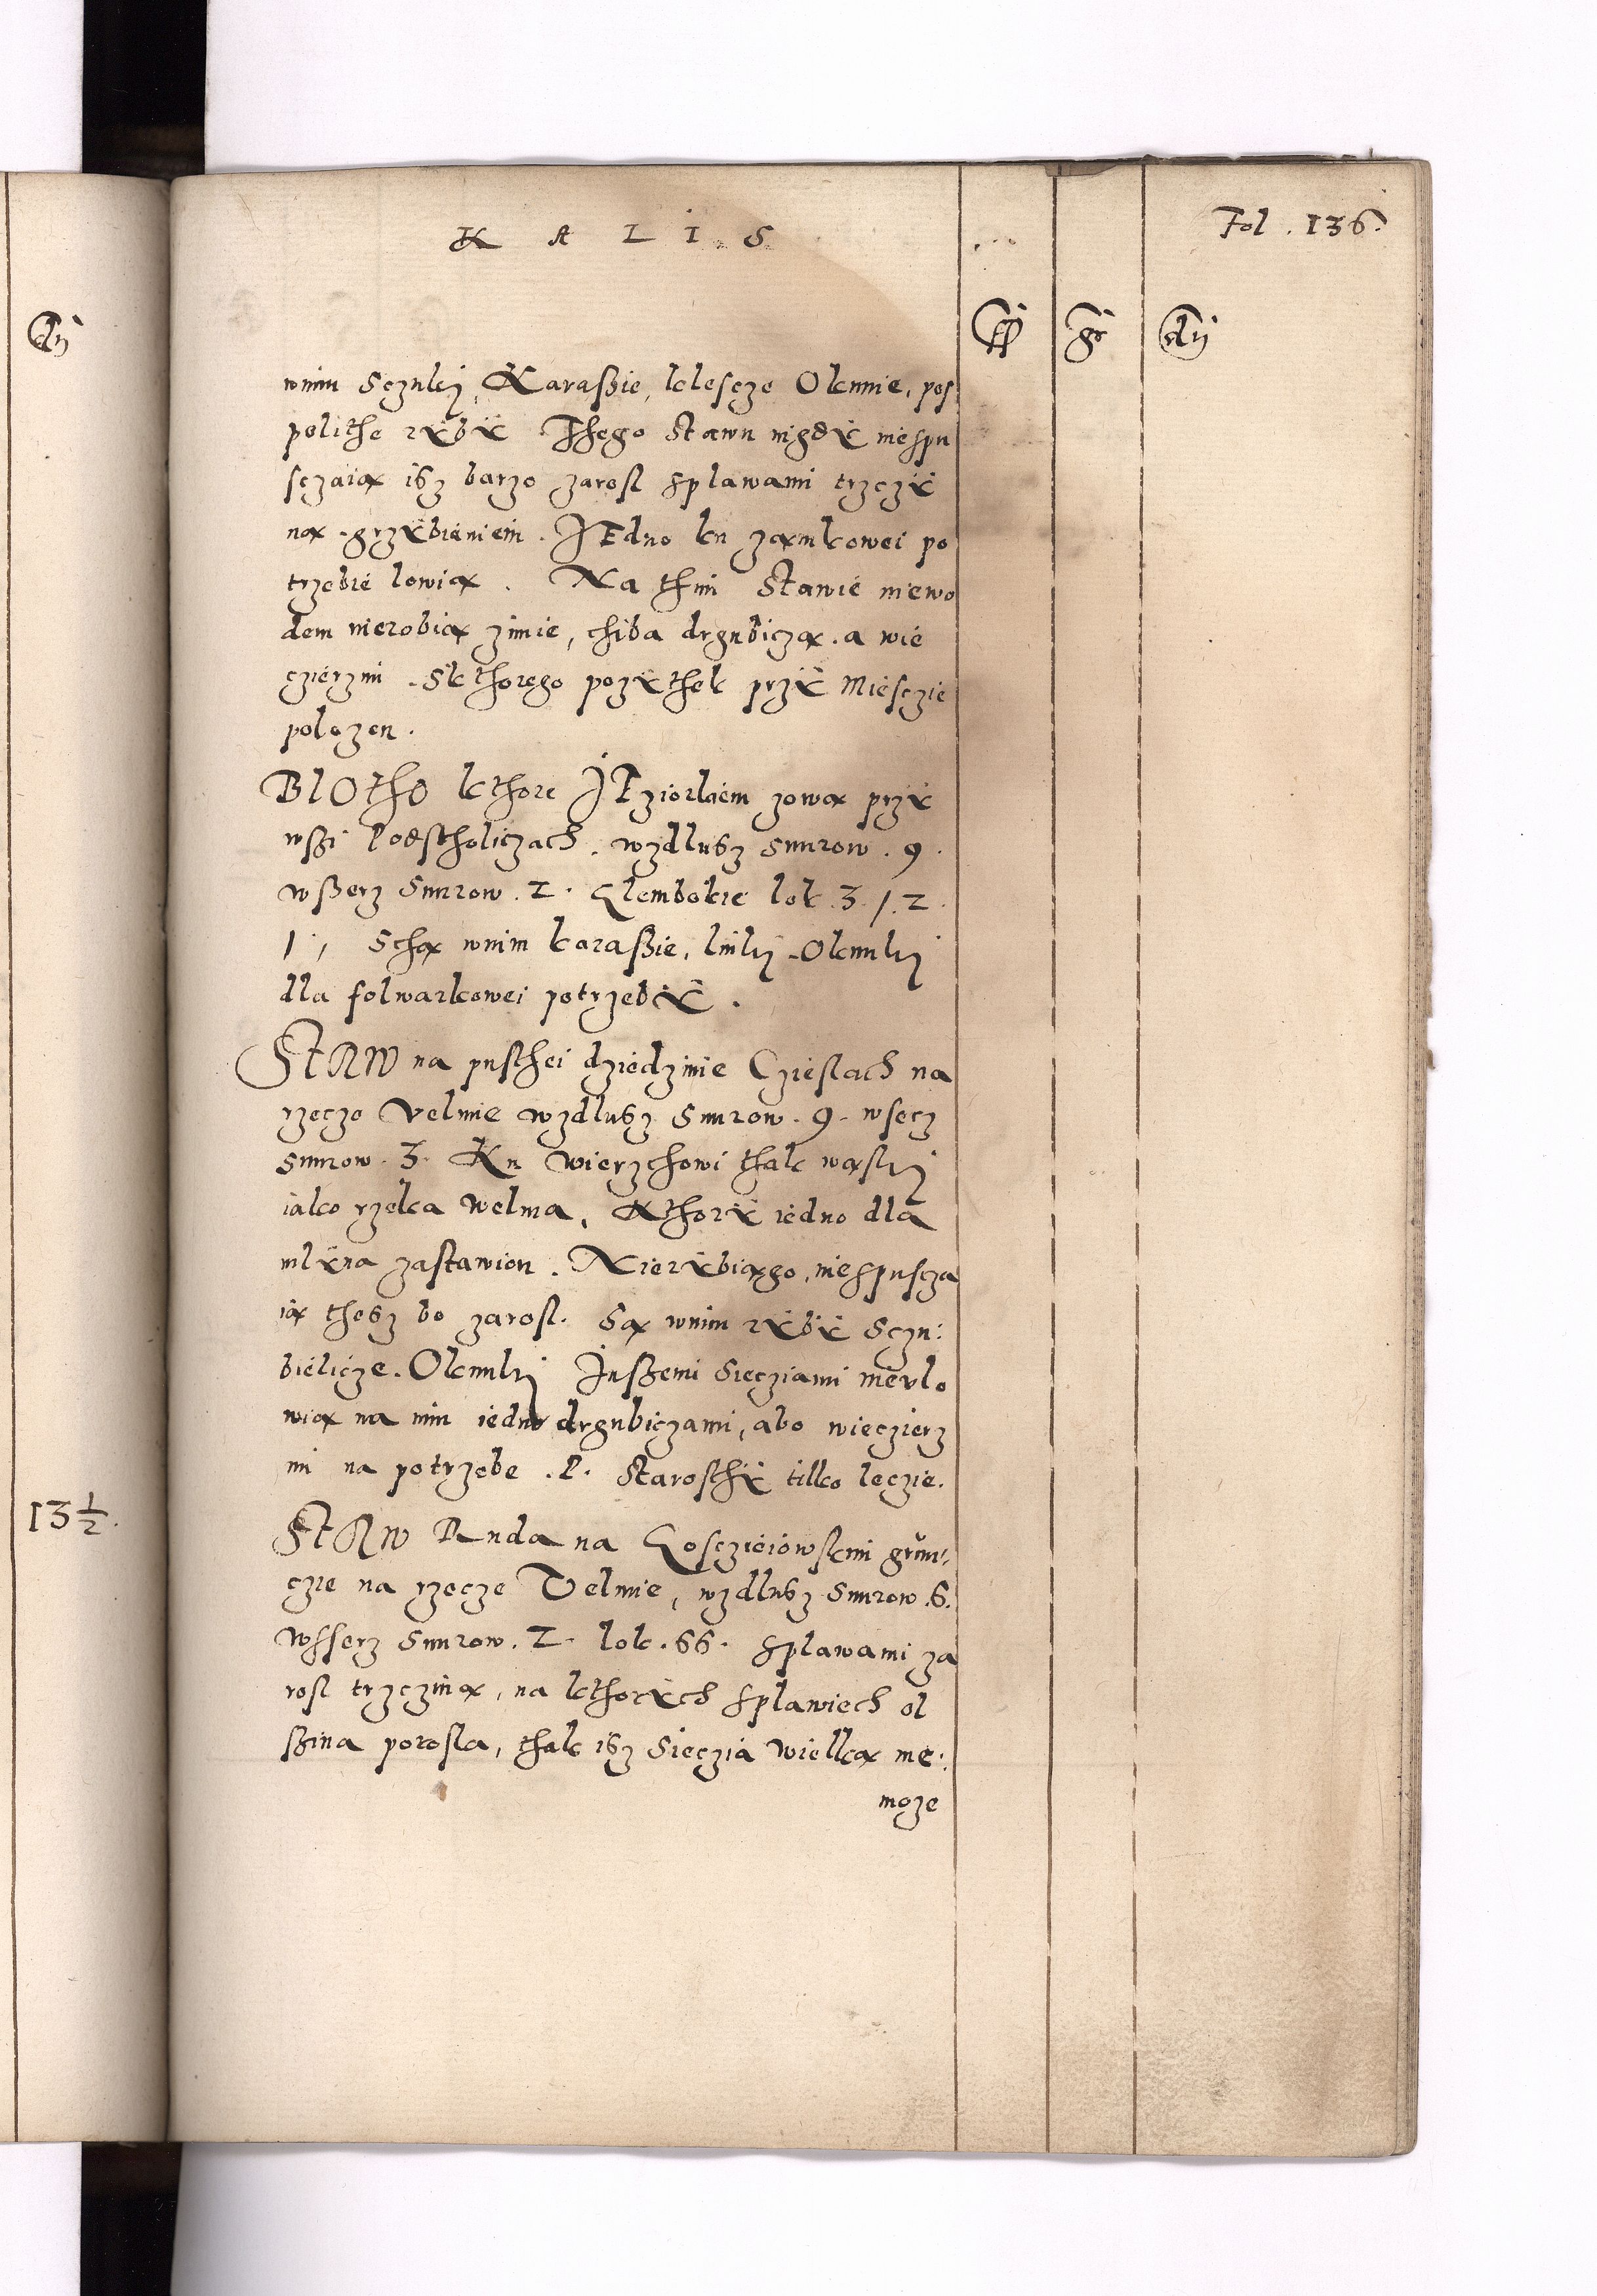 K A L I S
Fol. 136.
fl gr dij
dij
wnim Sczuki, Karaßie, klescze Okunie, pos
polithe rÿbÿ Thego Stawu nigdÿ niespu
sczaią isz barzo zarosl splawami trzczÿ
ną grzÿbieniem. JEdno ku ząmkowei po
trzebie lowią. Na thim Stawie niewo
dem nierobią zimie, chiba drgubiczą. a wie
czierzmi Skthorego pozÿthek przÿ Miesczie
polozen.
BlOthO kthore JEziorkiem zową przÿ
wßi Podstholiczach. wzdlusz Snurow. 9.
wßerz Snurow. 2. Glembokie lok. 3. /. 2.
1., Sthą wnim karaßie, linki Okunki
dla folwarkowei potrzebÿ.
StAW na pusthei dziedzinie Czieslach na
rzecze Velmie wzdlusz Snurow. 9. wserz
Snurow. 3. Ku wierzchowi thak wąski
iako rzeka Welma, Kthorÿ iedno dla
mlÿna zastawion. Nierÿbiągo, niespuscza
ią thesz bo zarosl. Są wnim rÿbÿ Sczu:
bielicze. Okunki Jnßemi Sieciziami nieulo
wią na nim iedno drgubiczami, abo wieczierz
mi na potrzebe .P. Starosthÿ tilko leczie.
13 1/2.
StAW Ruda na Gosczieiowskim grun:
czie na rzecze Velmie, wzdlusz Snurow. 6.
wsserz Snurow. 2. lok. 66. splawami za
rosl trzcziną, na kthorÿch splawiech ol
ßina porosla, thak isz Sieczia wielką nie:
moze